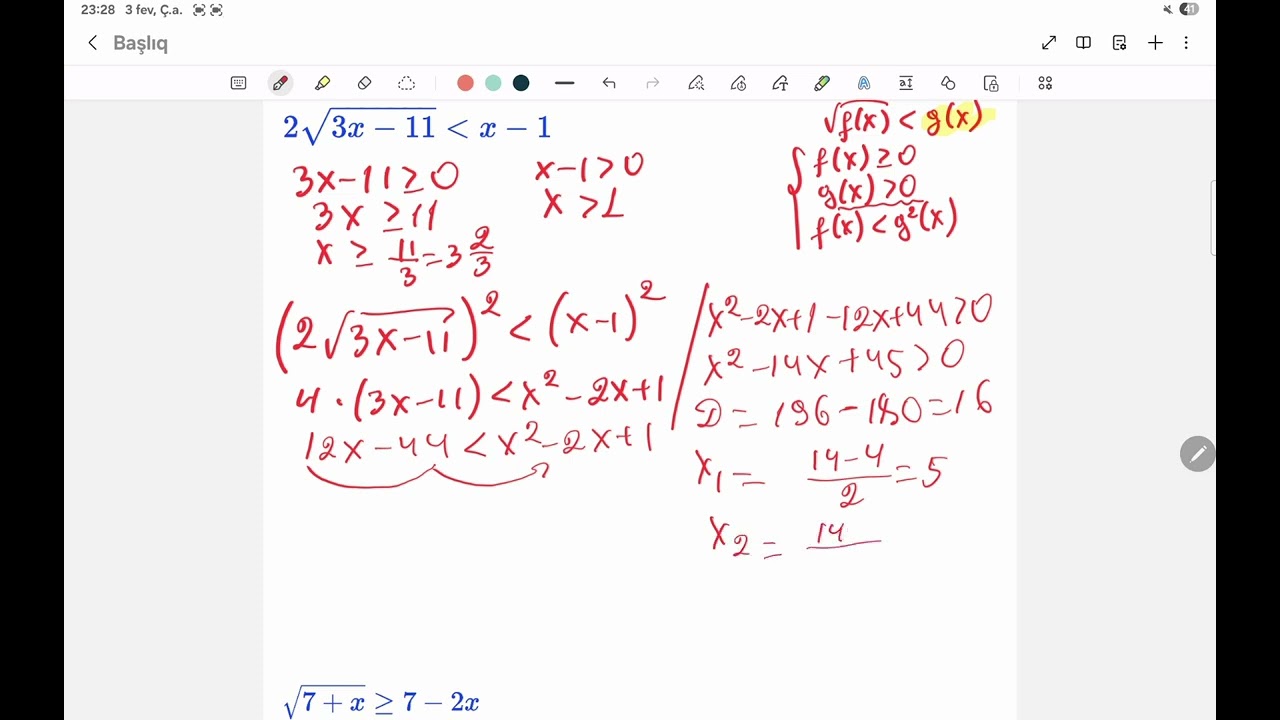 23:28 3 fev, Ç.a. 41
Başlıq
2√(3x − 11) < x − 1
√f(x) < g(x)
3x−11≥0
x−1>0
f(x)≥0
3x ≥11
x >1
g(x)>0
x ≥ 11/3 = 3 2/3
f(x)<g²(x)
(2√(3x−11))² < (x−1)²
4·(3x−11)<x²−2x+1
12x−44<x²−2x+1
x²−2x+1−12x+44>0
x²−14x+45>0
D=196−180=16
x₁= (14−4)/2 =5
x₂= 14
√(7 + x) ≥ 7 − 2x